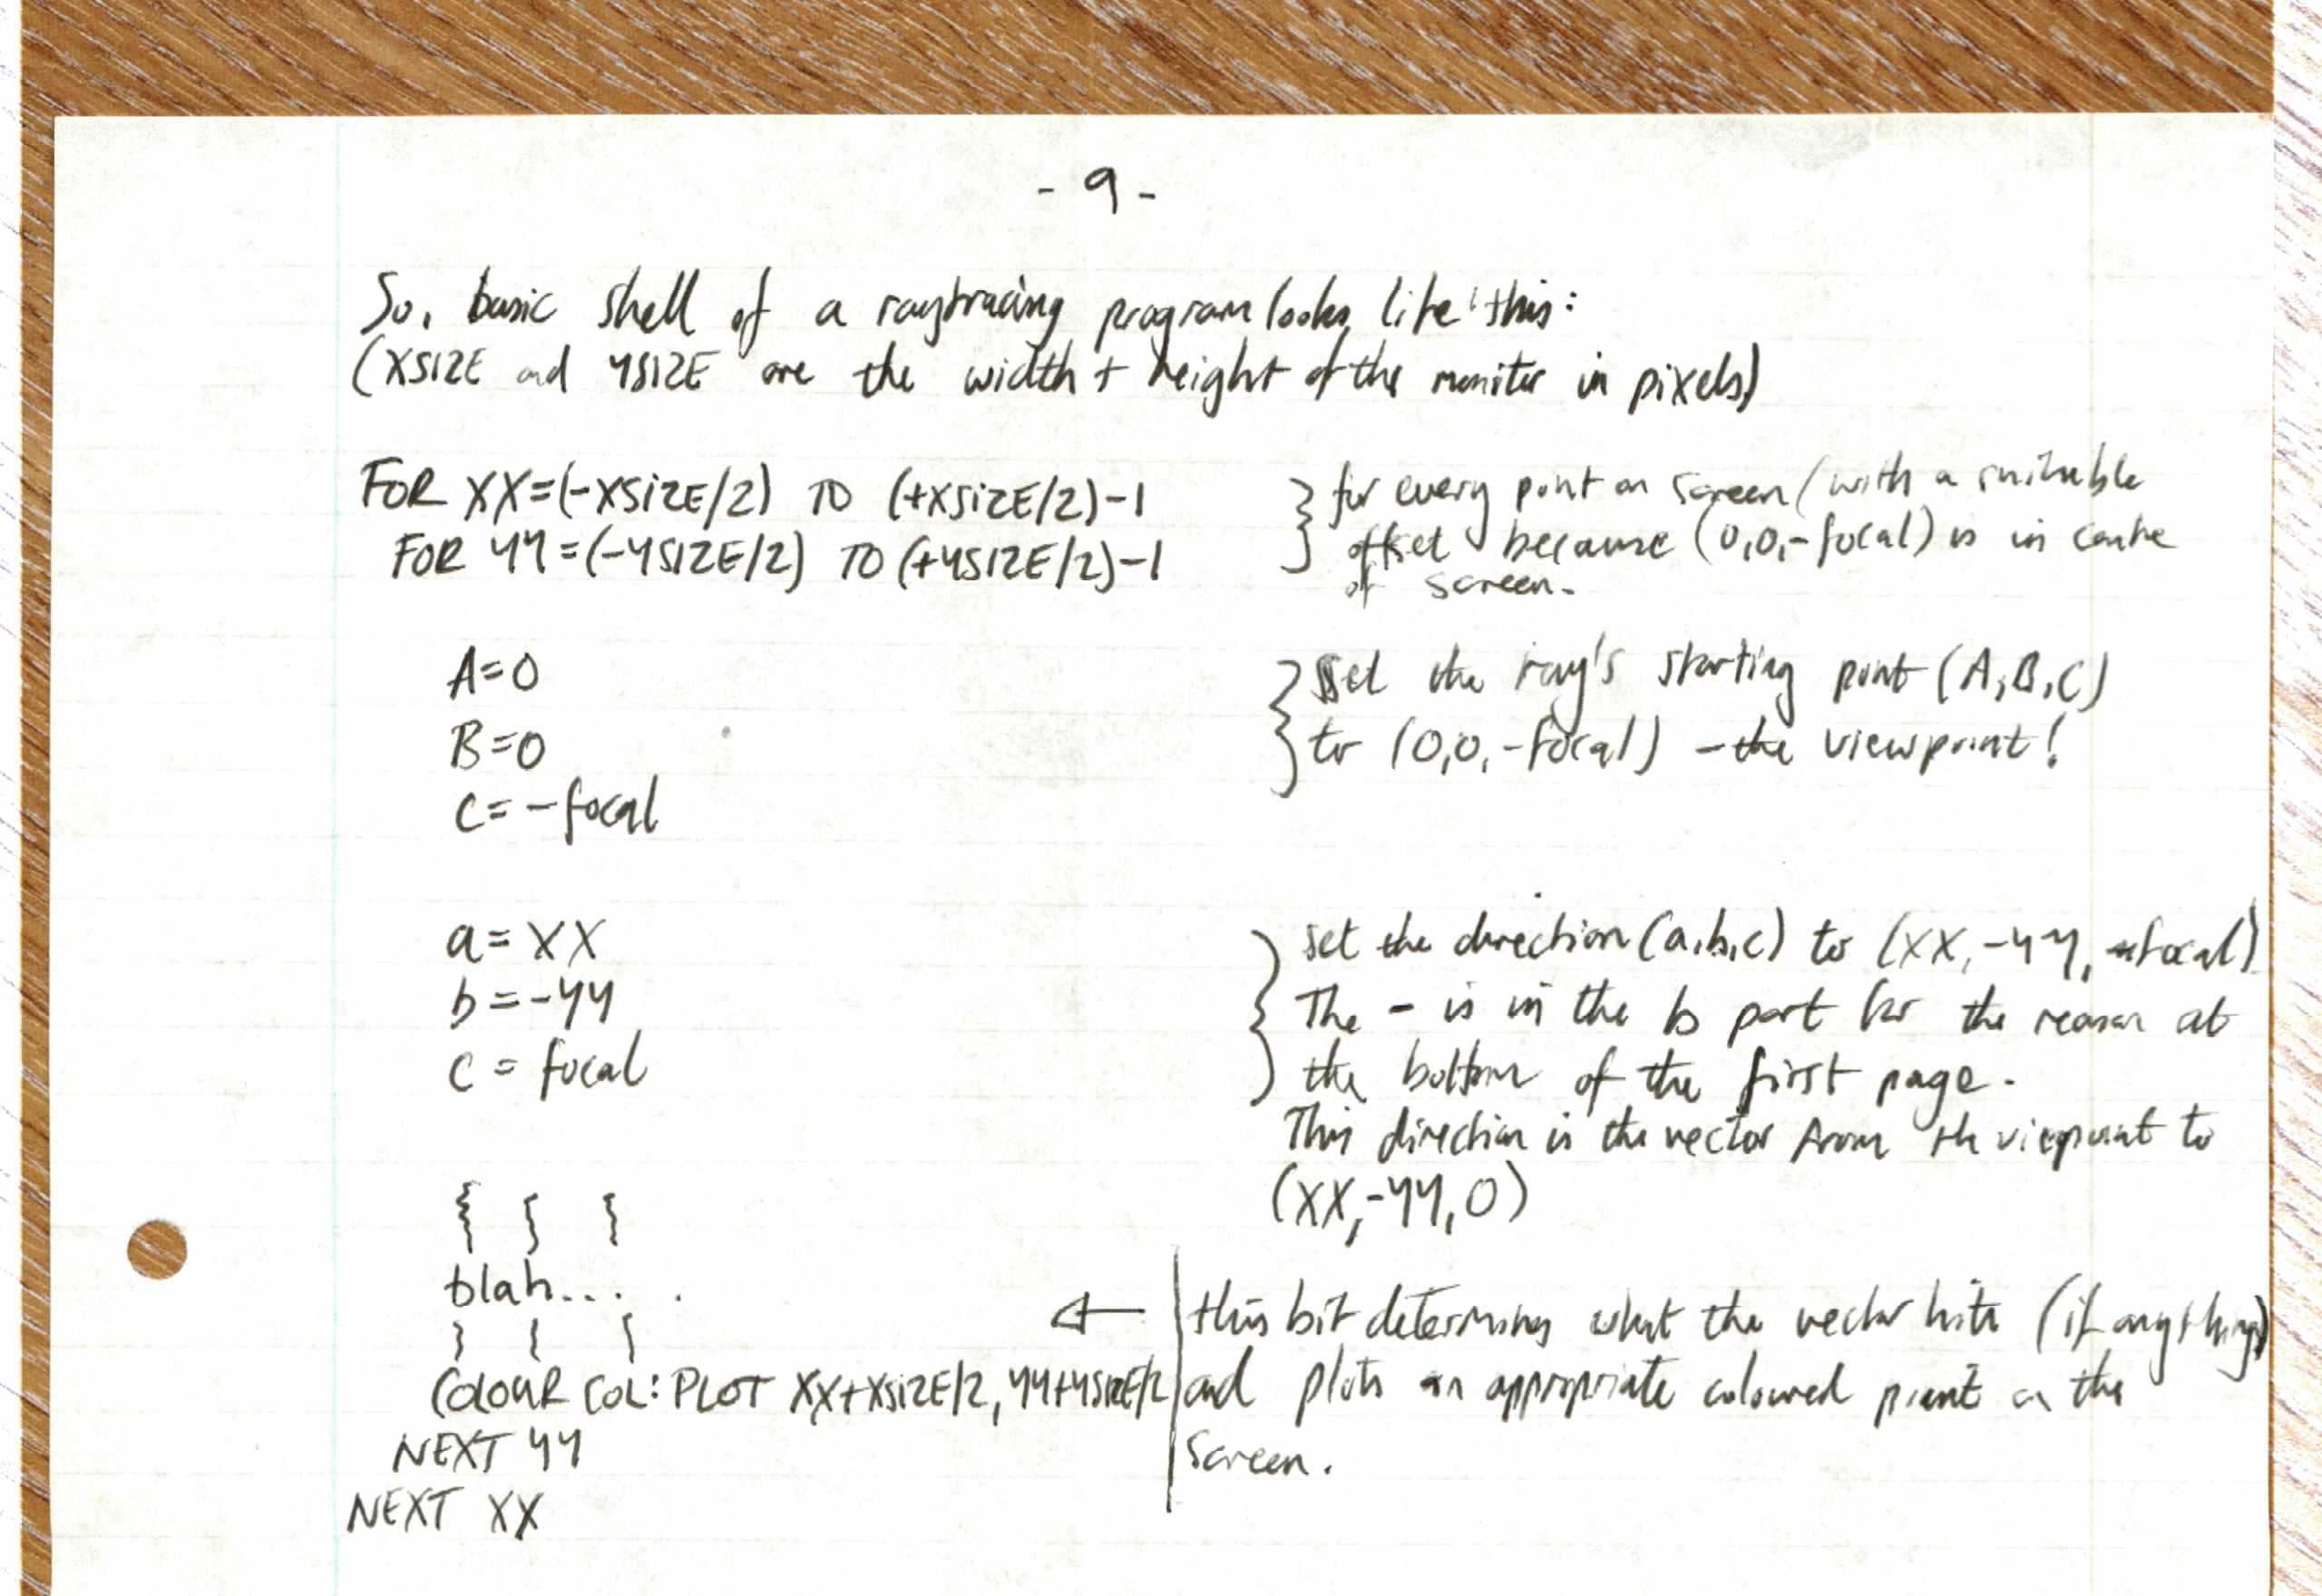 - 9 -
So, basic shell of a raytracing program looks like this:
(XSIZE and YSIZE are the width + height of the monitor in pixels)
FOR XX=(-XSIZE/2) TO (+XSIZE/2)-1
FOR YY=(-YSIZE/2) TO (+YSIZE/2)-1
for every point on screen (with a suitable
offset because (0,0,-focal) is in centre
of screen.
A=0
B=0
C=-focal
Set the ray's starting point (A,B,C)
to (0,0,-focal) - the viewpoint!
a=XX
b=-YY
c=focal
set the direction (a,b,c) to (XX,-YY, focal)
The - is in the b part for the reason at
the bottom of the first page.
This direction is the vector from the viewpoint to
(XX,-YY,0)
blah....
COLOUR COL: PLOT XX+XSIZE/2, YY+YSIZE/2
NEXT YY
NEXT XX
this bit determines what the vector hits (if anything)
and plots an appropriate coloured point on the
screen.